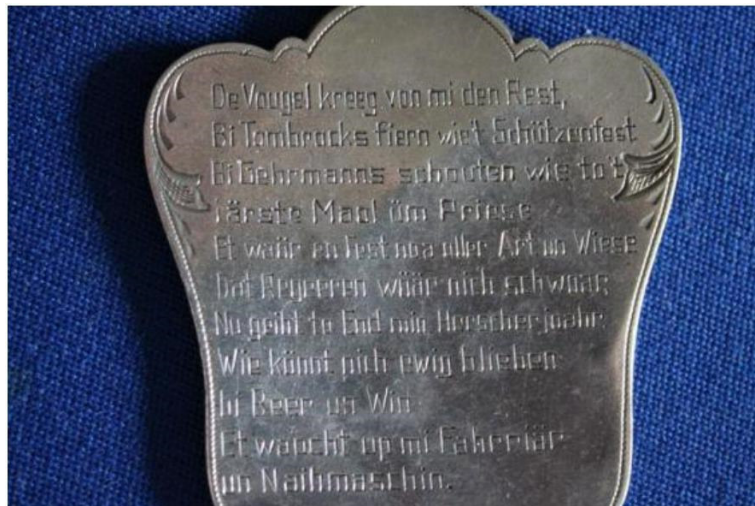 De Vougel kreeg von mi den Rest,
Bi Tombrocks fiern wie't Schützenfest
Bi Gehrmanns schouten wie to't
ärste Maol üm Priese
Et waör en Fest noa oller Art un Wiese
Dat Regeeren wöär nich schwoar,
Nu geiht to End min Herscherjoahr.
Wie könnt nich ewig blieben
bi Beer un Win
Et waocht up mi Fahrriär
un Naihmaschin.